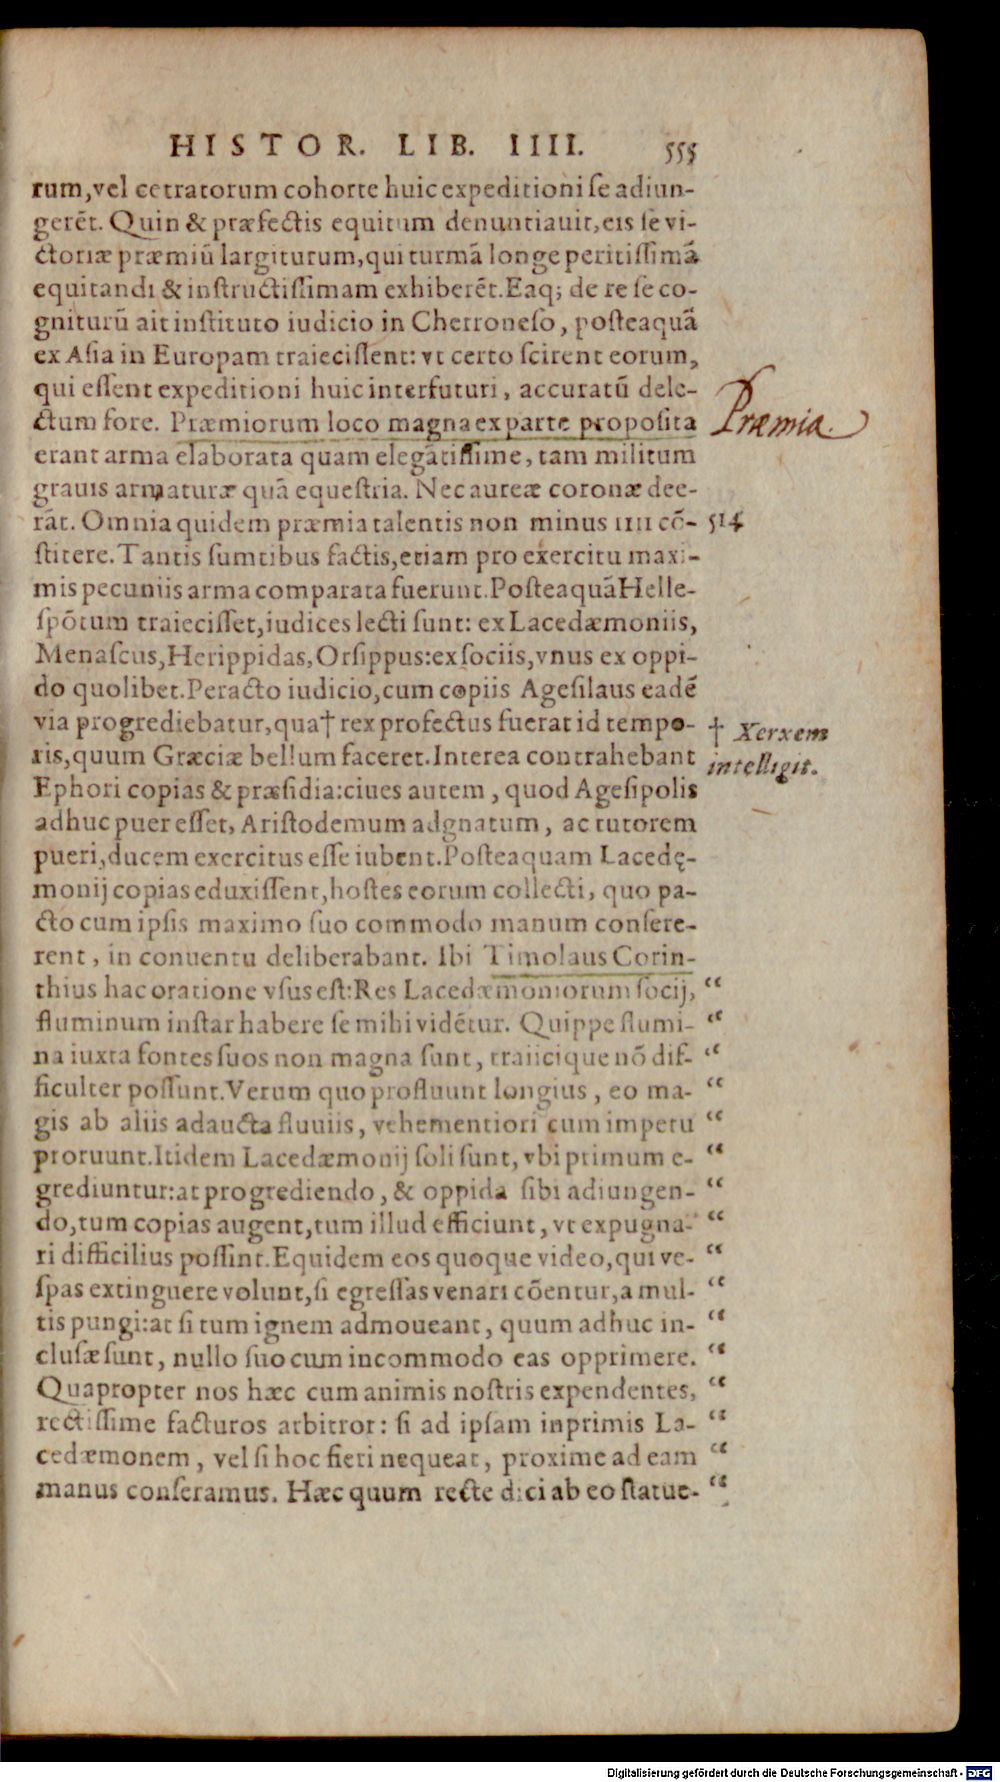 HISTOR. LIB. IIII. 555
rum, vel cetratorum cohorte huic expeditioni se adiun-
gerēt. Quin & præfectis equitum denuntiauit, eis se vi-
ctoriæ præmiū largiturum, qui turmā longe peritissimā
equitandi & instructissimam exhiberēt. Eaq; de re se co-
gniturū ait instituto iudicio in Cherroneso, posteaquā
ex Asia in Europam traiecissent: vt certo scirent eorum,
qui essent expeditioni huic interfuturi, accuratū dele-
ctum fore. Præmiorum loco magna ex parte proposita
Præmia.
erant arma elaborata quam elegātissime, tam militum
grauis armaturæ quā equestria. Nec aureæ coronæ dee-
rāt. Omnia quidem præmia talentis non minus IIII cō- 514
stitere. Tantis sumtibus factis, etiam pro exercitu maxi-
mis pecuniis arma comparata fuerunt. Posteaquā Helle-
spōtum traiecisset, iudices lecti sunt: ex Lacedæmoniis,
Menascus, Herippidas, Orsippus: ex sociis, vnus ex oppi-
do quolibet. Peracto iudicio, cum copiis Agesilaus eadē
via progrediebatur, qua† rex profectus fuerat id tempo-
† Xerxem
ris, quum Græciæ bellum faceret. Interea contrahebant
intelligit.
Ephori copias & præsidia: ciues autem, quod Agesipolis
adhuc puer esset, Aristodemum adgnatum, ac tutorem
pueri, ducem exercitus esse iubent. Posteaquam Lacedę-
monij copias eduxissent, hostes eorum collecti, quo pa-
cto cum ipsis maximo suo commodo manum consere-
rent, in conuentu deliberabant. Ibi Timolaus Corin-
thius hac oratione vsus est: Res Lacedæmoniorum socij, “
fluminum instar habere se mihi vidētur. Quippe flumi- “
na iuxta fontes suos non magna sunt, traiicique nō dif- “
ficulter possunt. Verum quo profluunt longius, eo ma- “
gis ab aliis adaucta fluuiis, vehementiori cum impetu “
proruunt. Itidem Lacedæmonij soli sunt, vbi primum e- “
grediuntur: at progrediendo, & oppida sibi adiungen- “
do, tum copias augent, tum illud efficiunt, vt expugna- “
ri difficilius possint. Equidem eos quoque video, qui ve- “
spas extinguere volunt, si egressas venari cōentur, a mul- “
tis pungi: at si tum ignem admoueant, quum adhuc in- “
clusæ sunt, nullo suo cum incommodo eas opprimere. “
Quapropter nos hæc cum animis nostris expendentes, “
rectissime facturos arbitror: si ad ipsam inprimis La- “
cedæmonem, vel si hoc fieri nequeat, proxime ad eam “
manus conseramus. Hæc quum recte dici ab eo statue- “
Digitalisierung gefördert durch die Deutsche Forschungsgemeinschaft - DFG